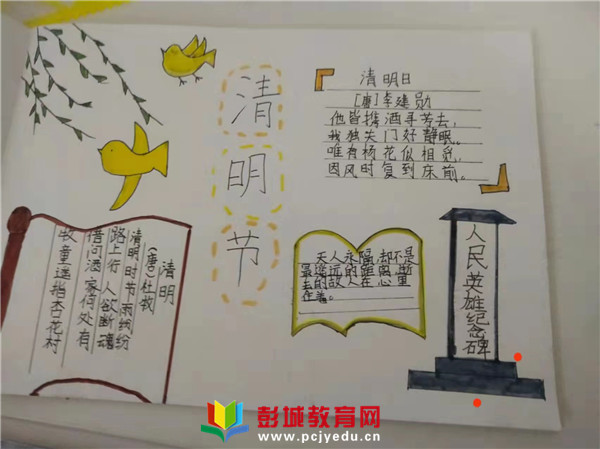 清明节
清明日
[唐]李建勋
他皆携酒寻芳去,
我独关门好静眠。
唯有杨花似相觅,
因风时复到床前。
清明
(唐)杜牧
清明时节雨纷纷
路上行人欲断魂
借问酒家何处有
牧童遥指杏花村
天人永隔,却不是
最遥远的距离,逝
去的故人在心
在着。
人民英雄纪念碑
彭城教育网
www.pcjyedu.cn